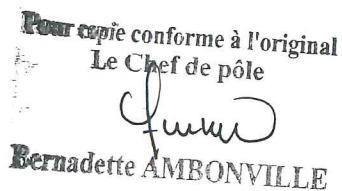 Pour copie conforme à l'original
Le Chef de pôle
Bernadette AMBONVILLE